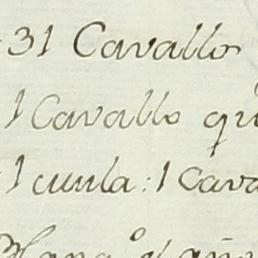 31 Cavallo
1 Cavallo qu
1 cunla: 1 Cava